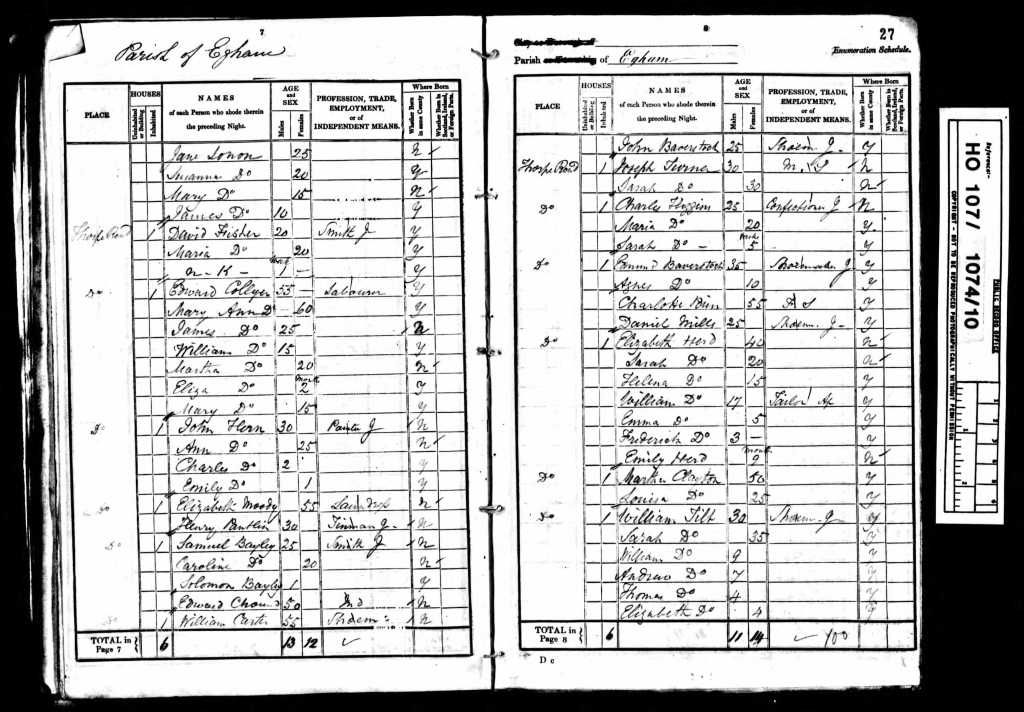 7
Parish of Egham
PLACE HOUSES Uninhabited or Building Inhabited NAMES of each Person who abode therein the preceding Night. AGE and SEX Males Females PROFESSION, TRADE, EMPLOYMENT, or of INDEPENDENT MEANS. Where Born Whether Born in same County Whether Born in Scotland, Ireland, or Foreign Parts.
Jane 25 N
Susanna Do 20 Y
Mary Do 15 N
James Do 10 Y
Thorpe Road 1 David Fisher 20 Smith J Y
Maria Do 20 Y
n - K - 1 - Y
Do 1 Edward Collyer 55 - Labourer Y
Mary Ann D - 60 Y
James Do 25 N
William Do 15 Y
Martha Do 20 N
Eliza Do month 2 Y
Mary Do 15 Y
Do 1 John Hern 30 Painter J N
Ann Do 25 N
Charles Do 2 Y
Emily Do 1 Y
Do 1 Elizabeth Moody 55 N
Henry 30 Tinman J - N
Do 1 Samuel Bayley 25 Smith J N
Caroline Do 20 N
Solomon Bayley 1 Y
Edward 50 Ind N
Do 1 William Carter 55 N
TOTAL in Page 7 6 13 12
8
27
Enumeration Schedule.
City or Borough of
Parish or Township of Egham
PLACE HOUSES Uninhabited or Building Inhabited NAMES of each Person who abode therein the preceding Night. AGE and SEX Males Females PROFESSION, TRADE, EMPLOYMENT, or of INDEPENDENT MEANS. Where Born Whether Born in same County Whether Born in Scotland, Ireland, or Foreign Parts.
John Baverstock 25 Shoem. J - Y
Thorpe Road 1 Joseph 30 N
Sarah Do 30 N
Do 1 Charles 25 Confectioner J N
Maria Do 20 Y
Sarah Do - 5 Y
Do 1 Edmund Baverstock 35 Shoemaker J Y
Agnes Do 10 Y
Charlotte 55 F S Y
Daniel Mills 25 Shoem. J - Y
Do 1 Elizabeth Herd 40 N
Sarah Do 20 N
Helena Do 15 Y
William Do 17 Tailor Ap Y
Emma Do 5 Y
Frederick Do 3 - Y
Emily Herd month 9 N
Do 1 Martha Clayton 50 Y
Louisa Do 25 Y
Do 1 William Tilt 30 Shoem. J Y
Sarah Do 35 Y
William Do 9 Y
Andrew Do 7 Y
Thomas Do 4 Y
Elizabeth Do 4 Y
TOTAL in Page 8 6 11 14 100
D c
Reference:-
HO 107/1074/10
PUBLIC RECORD OFFICE
COPYRIGHT - NOT TO BE REPRODUCED PHOTOGRAPHICALLY WITHOUT PERMISSION